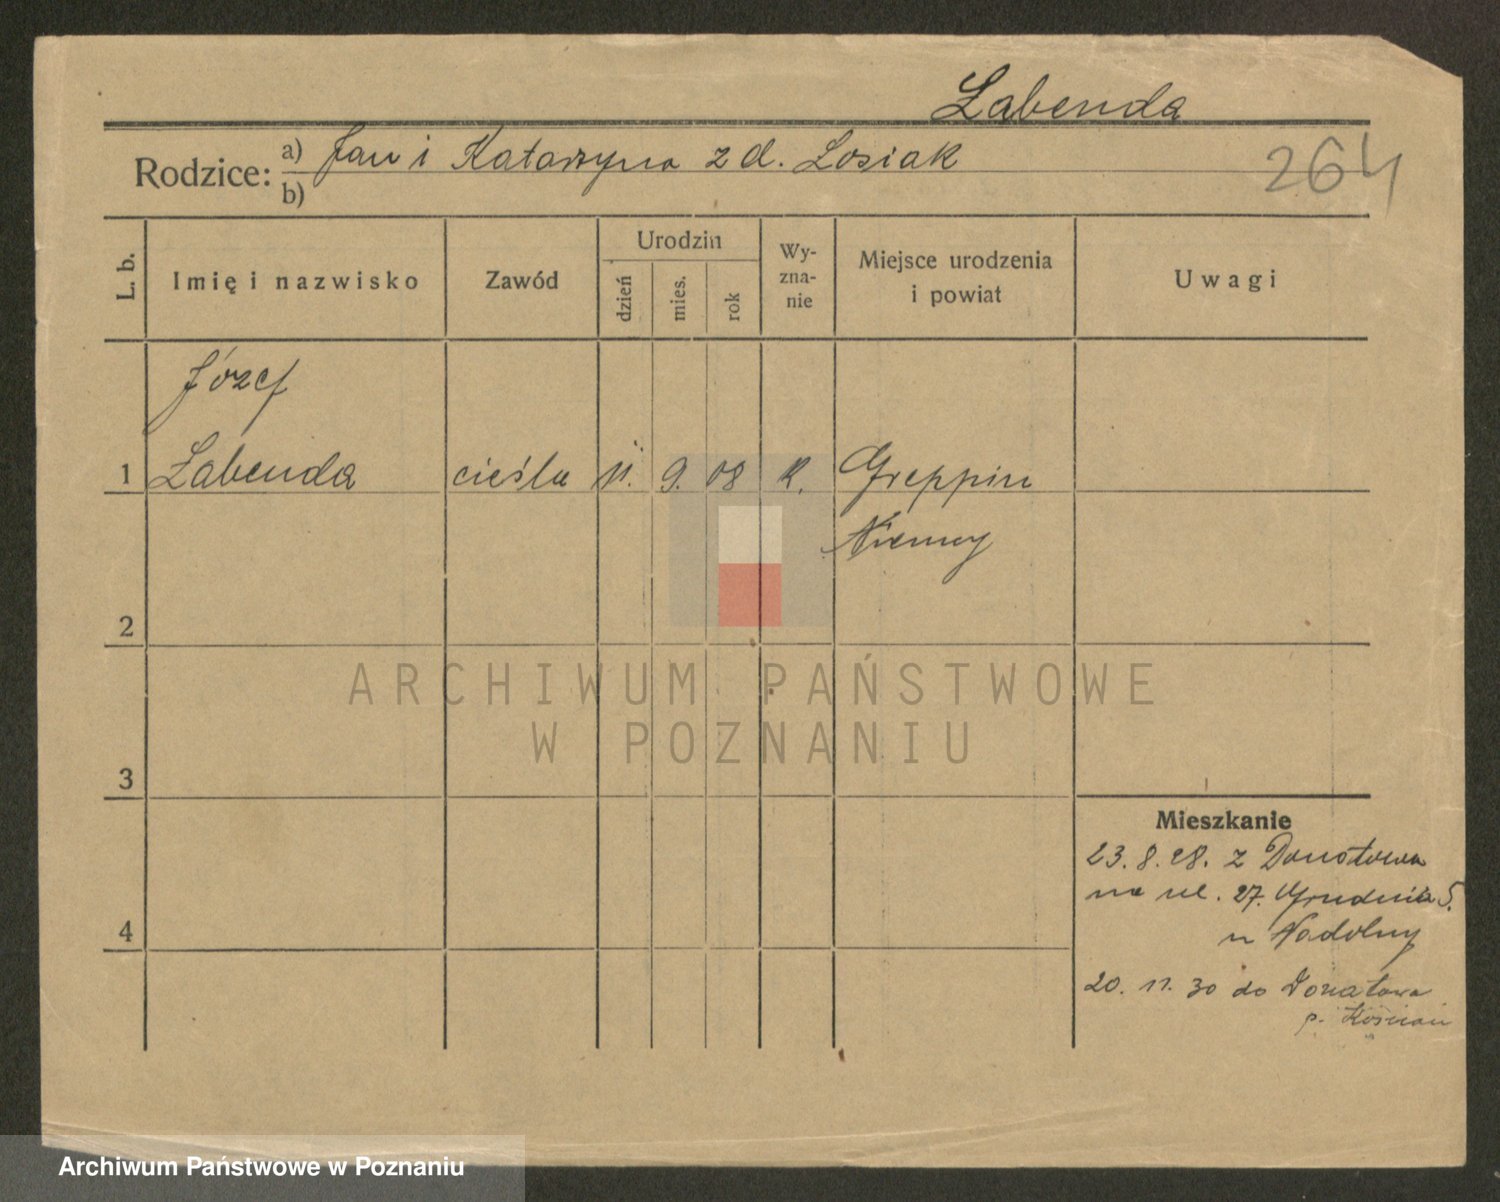 Labenda
Rodzice: a) Jan i Katarzyna z d. Losiak
b)
264
L. b.
Imię i nazwisko
Zawód
Urodzin
dzień
mies.
rok
Wy-
zna-
nie
Miejsce urodzenia
i powiat
Uwagi
Józef
1 Labenda cieśla 11. 9. 08 K. Greppin
Niemcy
2
ARCHIWUM PAŃSTWOWE
W POZNANIU
3
Mieszkanie
23. 8. 28. z Donatowa
na ul. 27. Grudnia 5.
u Nadolny
4
20. 11. 30 do Donatowa
p. Kościan
Archiwum Państwowe w Poznaniu